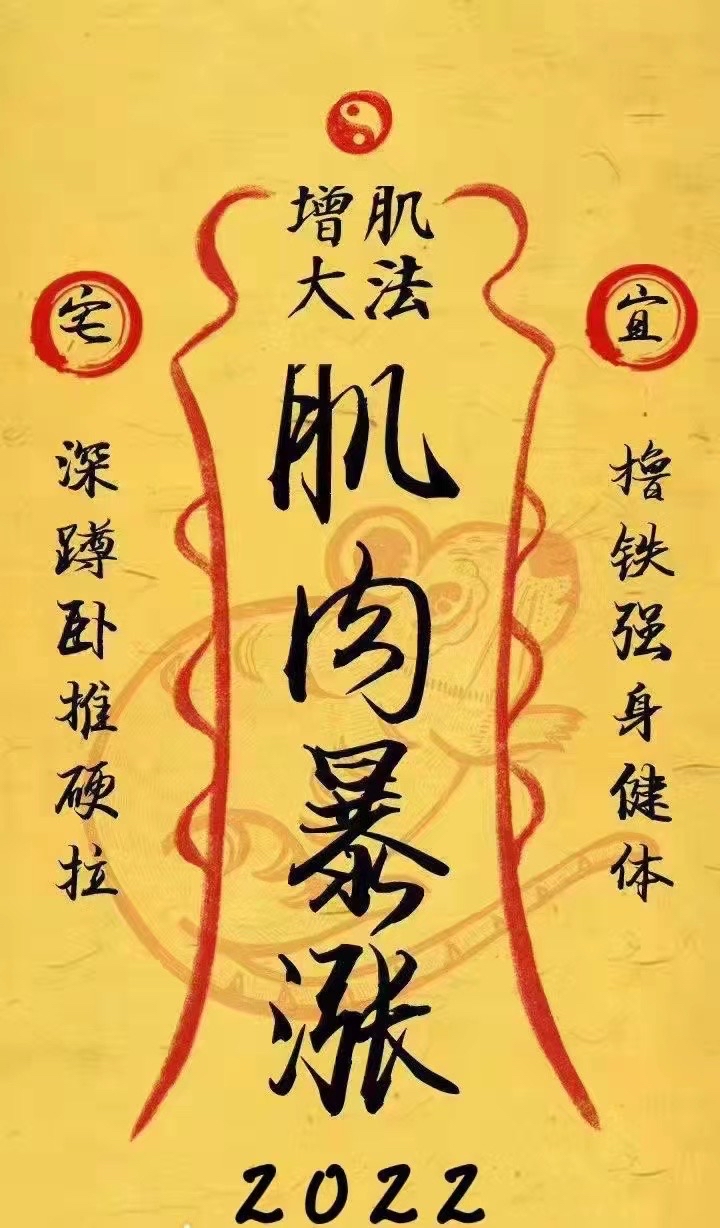 增肌
大法
宜
撸铁强身健体
肌肉暴涨
宅
深蹲卧推硬拉
2022